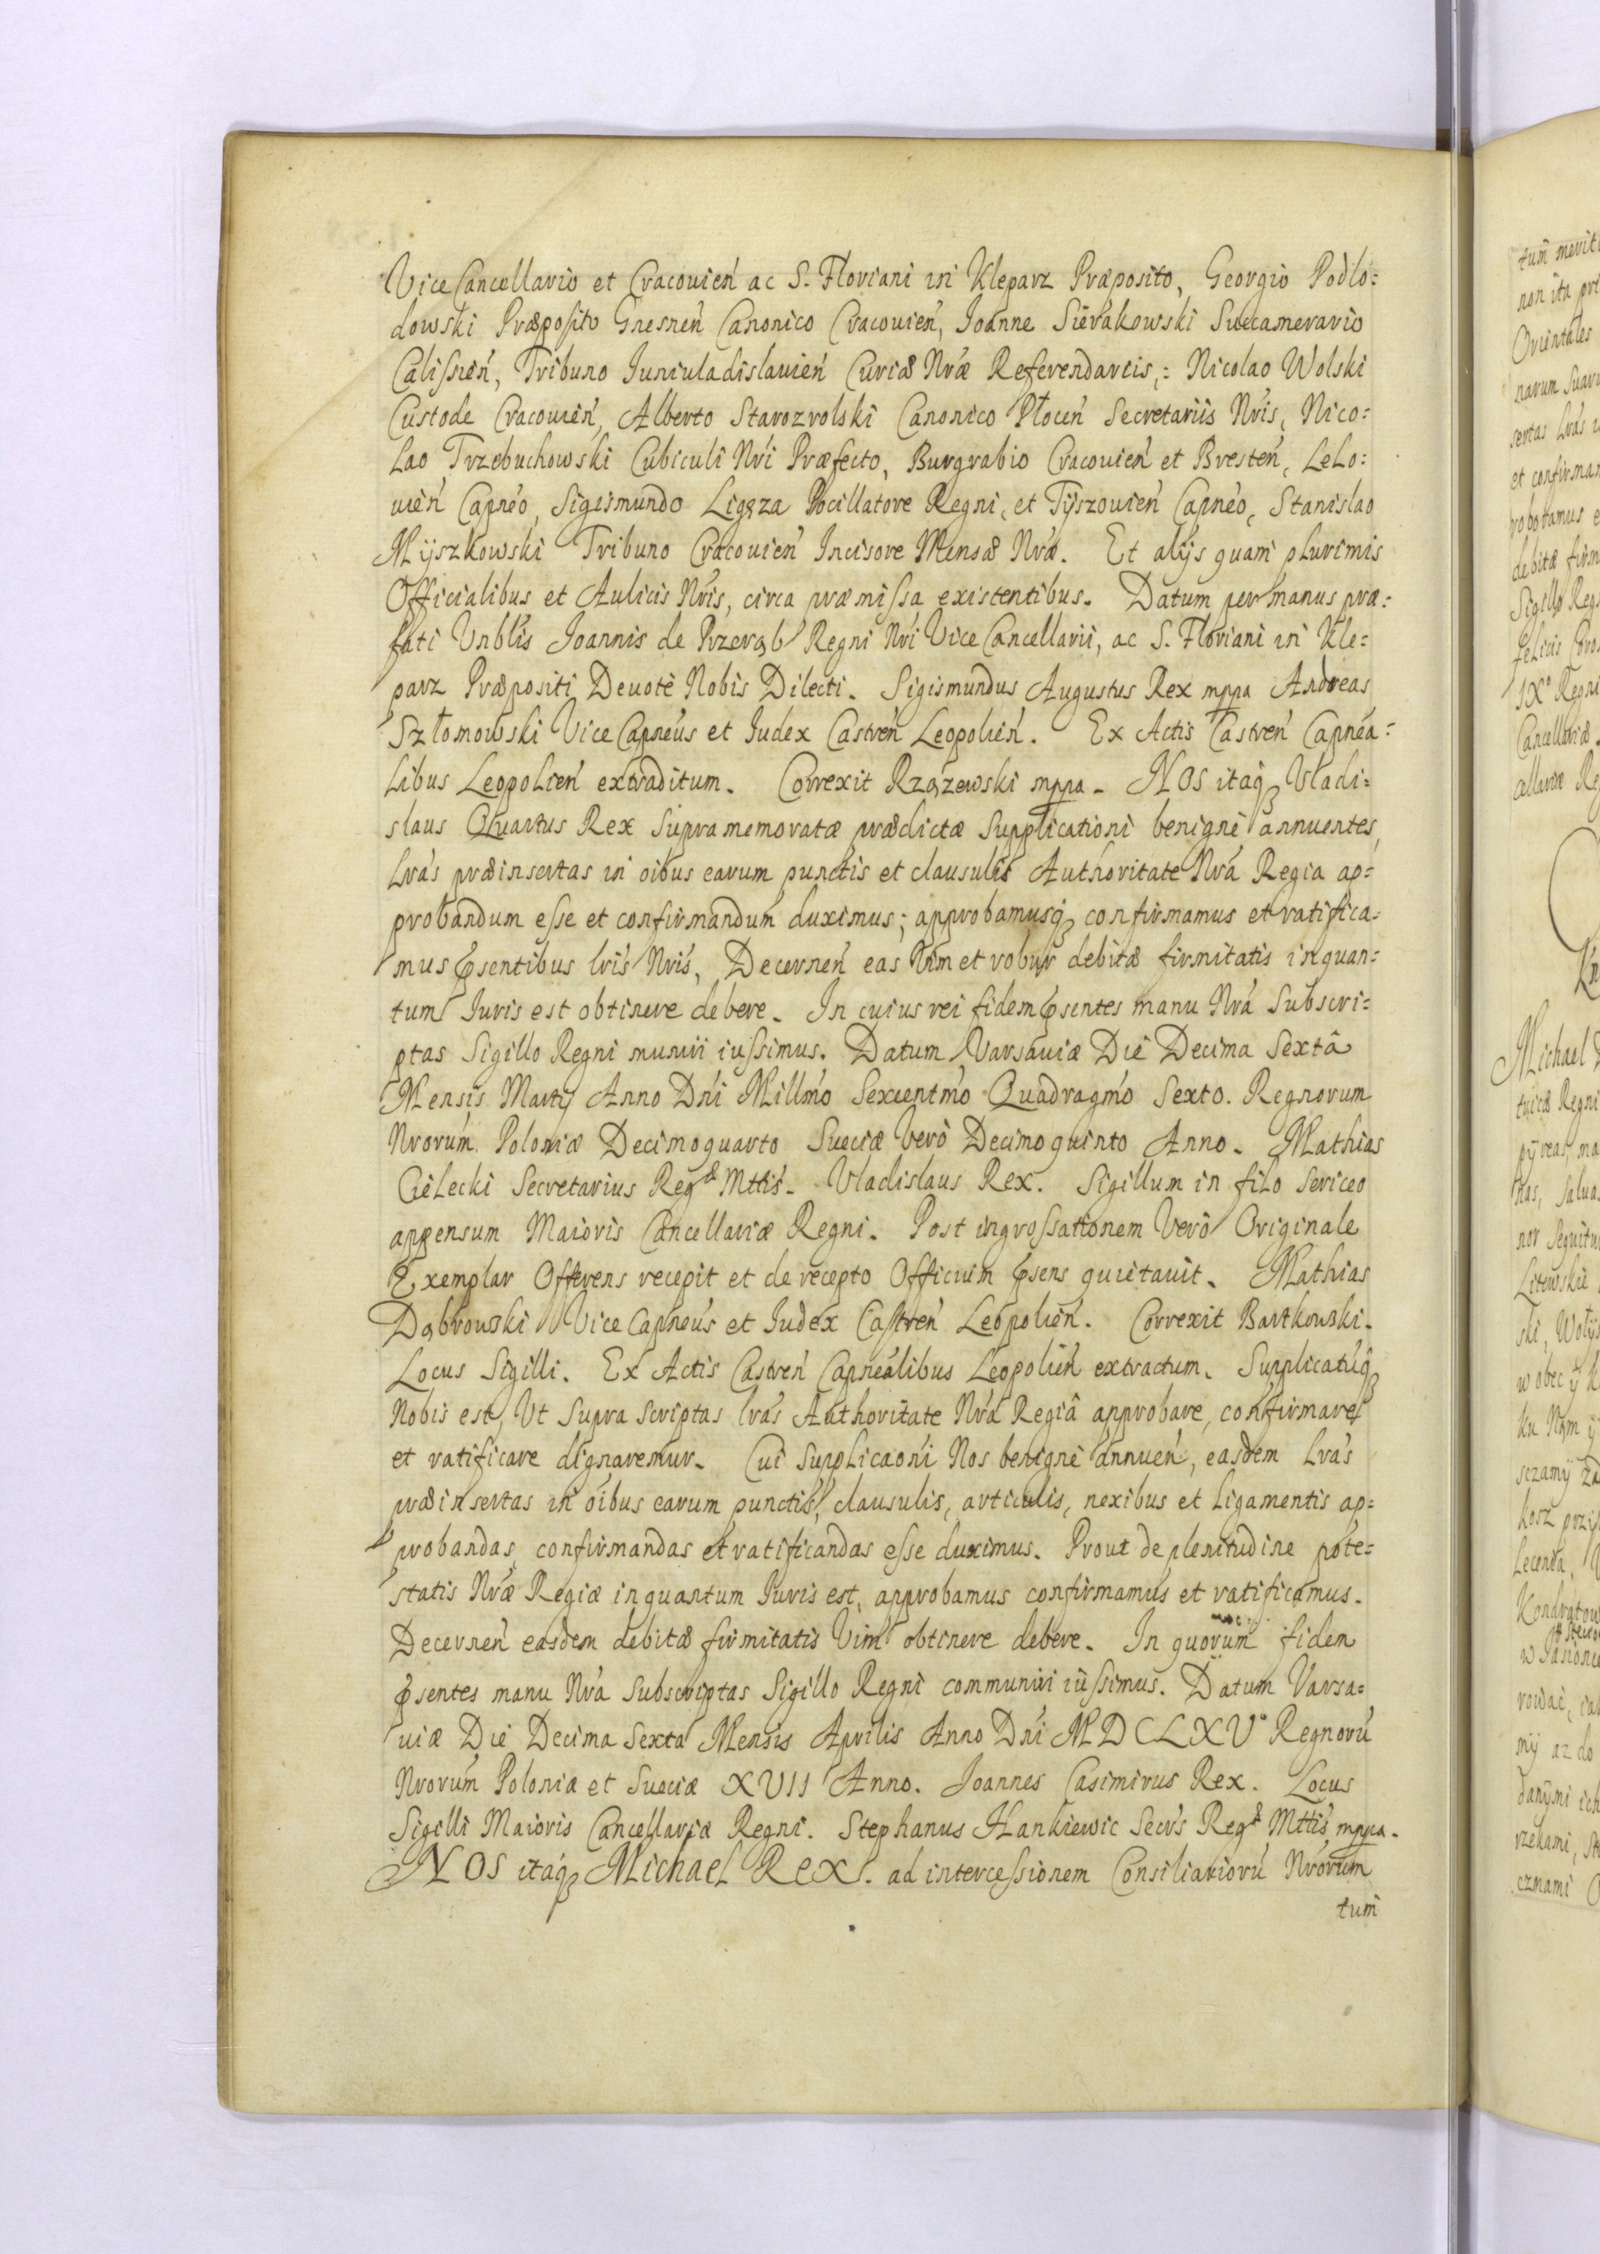 Vice Cancellario et Cracouień ac S. Floriani in Kleparz Præposito, Georgio Podlo:
dowski Præposito Gnesneń Canonico Cracouień, Joanne Sierakowski Succamerario
Calissień, Tribuno Juniuladislauień Curiæ Nræ Referendariis,: Nicolao Wolski
Custode Cracouień, Alberto Starozrolski Canonico Płoceń Secretariis Nrís, Nico:
lao Trzebuchowski Cubiculi Nrí Præfecto, Burgrabio Cracouień et Bresteń, Lelo:
uień Capnéo, Sigismundo Ligęza Pocillatore Regni, et Tyszouień Capnéo, Stanislao
Myszkowski Tribuno Cracouień Incisore Mensæ Nræ. Et alijs quam plurimis
Officialibus et Aulicis Nrís, circa præmissa existentibus. Datum per manus præ:
fati Vnblís Joannis de Przeręb Regni Nrí Vice Cancellarii, ac S. Floriani in Kle:
parz Præpositi Deuotè Nobis Dilecti. Sigismundus Augustus Rex mppa Andreas
Szłomowski Vice Capnéus et Judex Castreń Leopolień. Ex Actis Castreń Capnéa:
libus Leopolień extraditum. Correxit Rzązewski mppa. NOS itaq́ Vladi:
slaus Quartus Rex supra memoratæ prædictæ Supplicationi benignè annuentes,
Lrás præinsertas in oíbus earum punctis et clausulis Authoritate Nrá Regia ap:
probandum esse et confirmandum duximus; approbamusq́ confirmamus et ratifica:
mus p̱sentibus lrís Nrís, Decerneń eas Vim et robur debitæ firmitatis inquan:
tum Juris est obtinere debere. In cuius rei fidem p̱sentes manu Nrá Subscri:
ptas Sigillo Regni muniri iussimus. Datum Varsauiæ Die Decima Sextâ
Mensis Martij Anno Dńi Millmó Sexcentmó Quadragmó Sexto. Regnorum
Nrorúm Poloniæ Decimoquarto Sueciæ Verò Decimoquinto Anno. Mathias
Cielecki Secretarius Regæ Mttís. Vladislaus Rex. Sigillum in filo sericeo
appensum Maioris Cancellariæ Regni. Post ingrossationem Verò Originale
Exemplar Offerens recepit et de recepto Officium p̱sens quietauit. Mathias
Dąbrowski Vice Capnéus et Judex Castreń Leopolień. Correxit Bartkowski.
Locus Sigilli. Ex Actis Castreń Capneálibus Leopolień extractum. Supplicatúq́
Nobis est, Vt Supra Scriptas lrás Authoritate Nrá Regiâ approbare, confirmare,
et ratificare dignaremur. Cui Supplicaoní Nos benignè annueń, easdem Lrás
præinsertas in oíbus earum punctis, clausulis, articulis, nexibus et Ligamentis ap:
probandas, confirmandas et ratificandas esse duximus. Prout de plenitudine pote:
statis Nræ Regiæ inquantum Juris est, approbamus confirmamus et ratificamus.
Decerneń easdem debitæ firmitatis Vim obtinere debere. In quorum fidem
p̱sentes manu Nrá Subscriptas Sigillo Regni communiri iussimus. Datum Varsa:
uiæ Die Decima Sexta Mensis Aprilis Anno Dńi MDCLXV° Regnorú
Nrorúm Poloniæ et Sueciæ XVII Anno. Joannes Casimirus Rex. Locus
Sigilli Maioris Cancellariæ Regni. Stephanus Hankiewic Secrś Regæ Mttís mppa.
NOS itaq́ Michael Rex. ad intercessionem Consiliariorú Nrorúm
tum